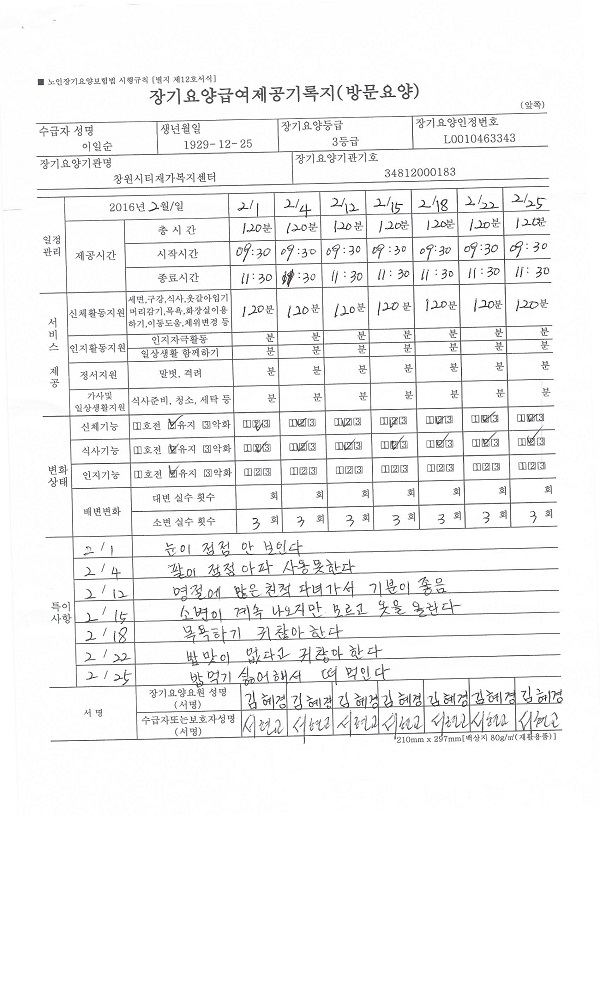 ■ 노인장기요양보험법 시행규칙 [별지 제12호서식]
장기요양급여제공기록지(방문요양)
(앞쪽)
수급자 성명 생년월일 장기요양등급 장기요양인정번호
이일순 1929-12-25 3등급 L0010463343
장기요양기관명 장기요양기관기호
창원시티재가복지센터 34812000183
일정 관리 2016년 2월/일 2/1 2/4 2/12 2/15 2/18 2/22 2/25
제공시간 총 시 간 120분 120분 120분 120분 120분 120분 120분
시작시간 09:30 09:30 09:30 09:30 09:30 09:30 09:30
종료시간 11:30 11:30 11:30 11:30 11:30 11:30 11:30
서비스 제공 신체활동지원 세면,구강,식사,옷갈아입기 머리감기,목욕,화장실이용 하기,이동도움,체위변경 등 120분 120분 120분 120분 120분 120분 120분
인지활동지원 인지자극활동 분 분 분 분 분 분 분
일상생활 함께하기 분 분 분 분 분 분 분
정서지원 말벗, 격려 분 분 분 분 분 분 분
가사및 일상생활지원 식사준비, 청소, 세탁 등 분 분 분 분 분 분 분
변화 상태 신체기능 1호전 2유지 3악화 123 123 123 123 123 123 123
식사기능 1호전 2유지 3악화 123 123 123 123 123 123 123
인지기능 1호전 2유지 3악화 123 123 123 123 123 123 123
배변변화 대변 실수 횟수 회 회 회 회 회 회 회
소변 실수 횟수 3회 3회 3회 3회 3회 3회 3회
특이 사항
2/1 눈이 점점 안 보인다
2/4 팔이 점점 아파 사용못한다
2/12 명절에 많은 친척 다녀가서 기분이 좋음
2/15 소변이 계속 나오지만 모르고 옷을 올린다
2/18 목욕하기 귀찮아한다
2/22 밥맛이 없다고 귀찮아한다
2/25 밥먹기 싫어해서 떡 먹인다
서 명 장기요양요원 성명 (서명) 김혜경 김혜경 김혜경 김혜경 김혜경 김혜경 김혜경
수급자또는보호자성명 (서명)
210mm x 297mm[백상지 80g/㎡(재활용품)]